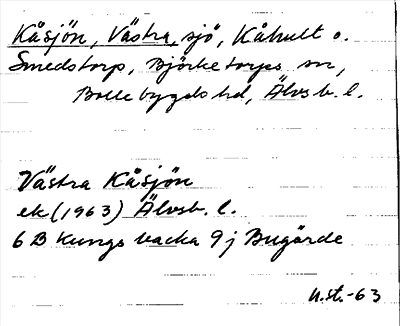 Kåsjön, Västra, sjö, Kåhult o.
Smedstorp, Björketorps sn,
Bollebygds hd, Älvsb. l.
Västra Kåsjön
ek (1963) Älvsb. l.
6 B Kungsbacka 9 j Bugärde
U.st.-63